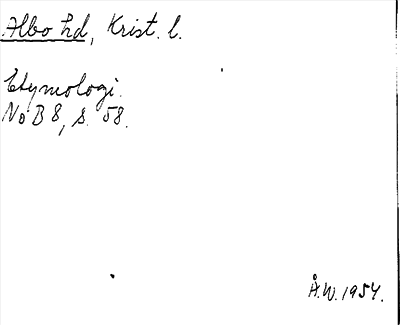 Albo hd, Krist. l.
Etymologi.
NoB 8, s. 58.
Å.W. 1954.